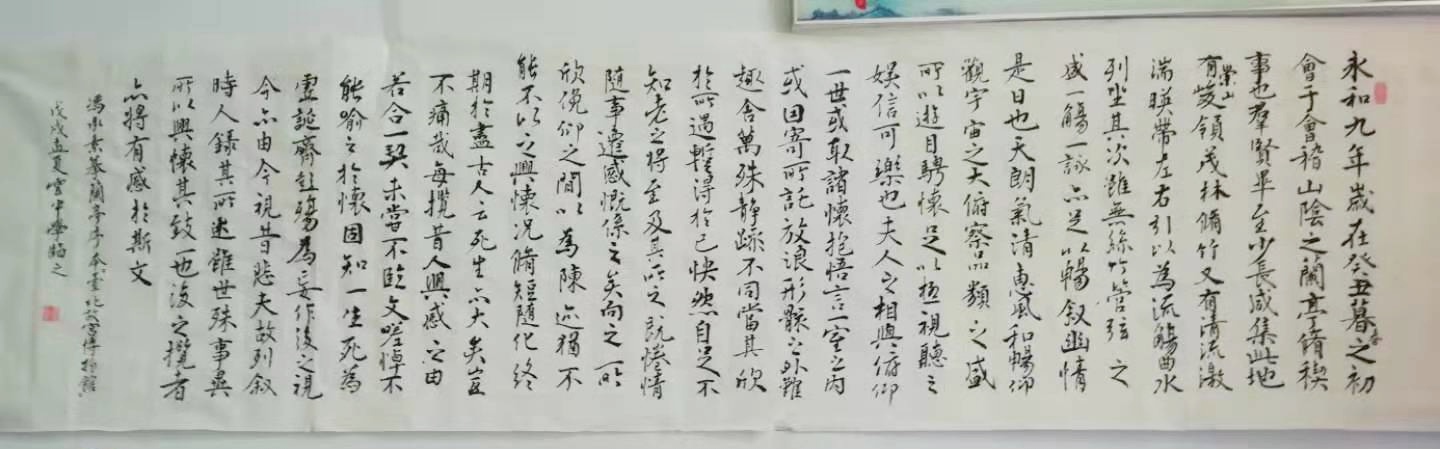 永和九年歲在癸丑暮春之初
會于會稽山陰之蘭亭脩禊
事也群賢畢至少長咸集此地
有崇山峻領茂林脩竹又有清流激
湍暎帶左右引以為流觴曲水
列坐其次雖無絲竹管弦之
盛一觴一詠亦足以暢敘幽情
是日也天朗氣清惠風和暢仰
觀宇宙之大俯察品類之盛
所以遊目騁懷足以極視聽之
娛信可樂也夫人之相與俯仰
一世或取諸懷抱悟言一室之內
或因寄所託放浪形骸之外雖
趣舍萬殊靜躁不同當其欣
於所遇暫得於己快然自足不
知老之將至及其所之既惓情
隨事遷感慨係之矣向之所
欣俛仰之間以為陳迹猶不
能不以之興懷況脩短隨化終
期於盡古人云死生亦大矣豈
不痛哉每攬昔人興感之由
若合一契未嘗不臨文嗟悼不
能喻之於懷固知一生死為
虛誕齊彭殤為妄作後之視
今亦由今視昔悲夫故列敘
時人錄其所述雖世殊事異
所以興懷其致一也後之攬者
亦將有感於斯文
馮承素摹蘭亭序本臺北故宮博物館
戊戌孟夏雪中學臨之